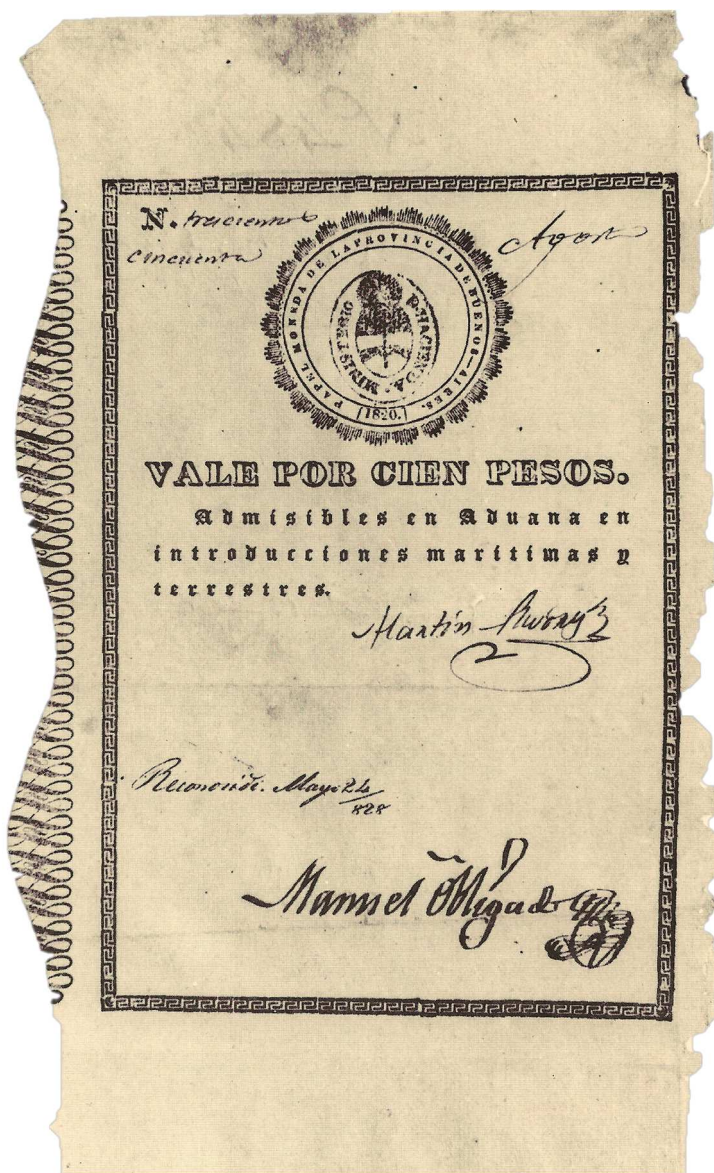 N. trescientos
cincuenta
Agosto
PAPEL MONEDA DE LA PROVINCIA DE BUENOS-AIRES.
MINISTERIO D. HACIENDA.
1820.
VALE POR CIEN PESOS.
Admisibles en Aduana en
introducciones marítimas y
terrestres.
Martín Rodrígz
Reconocido. Mayo 24
828
Manuel Obligado